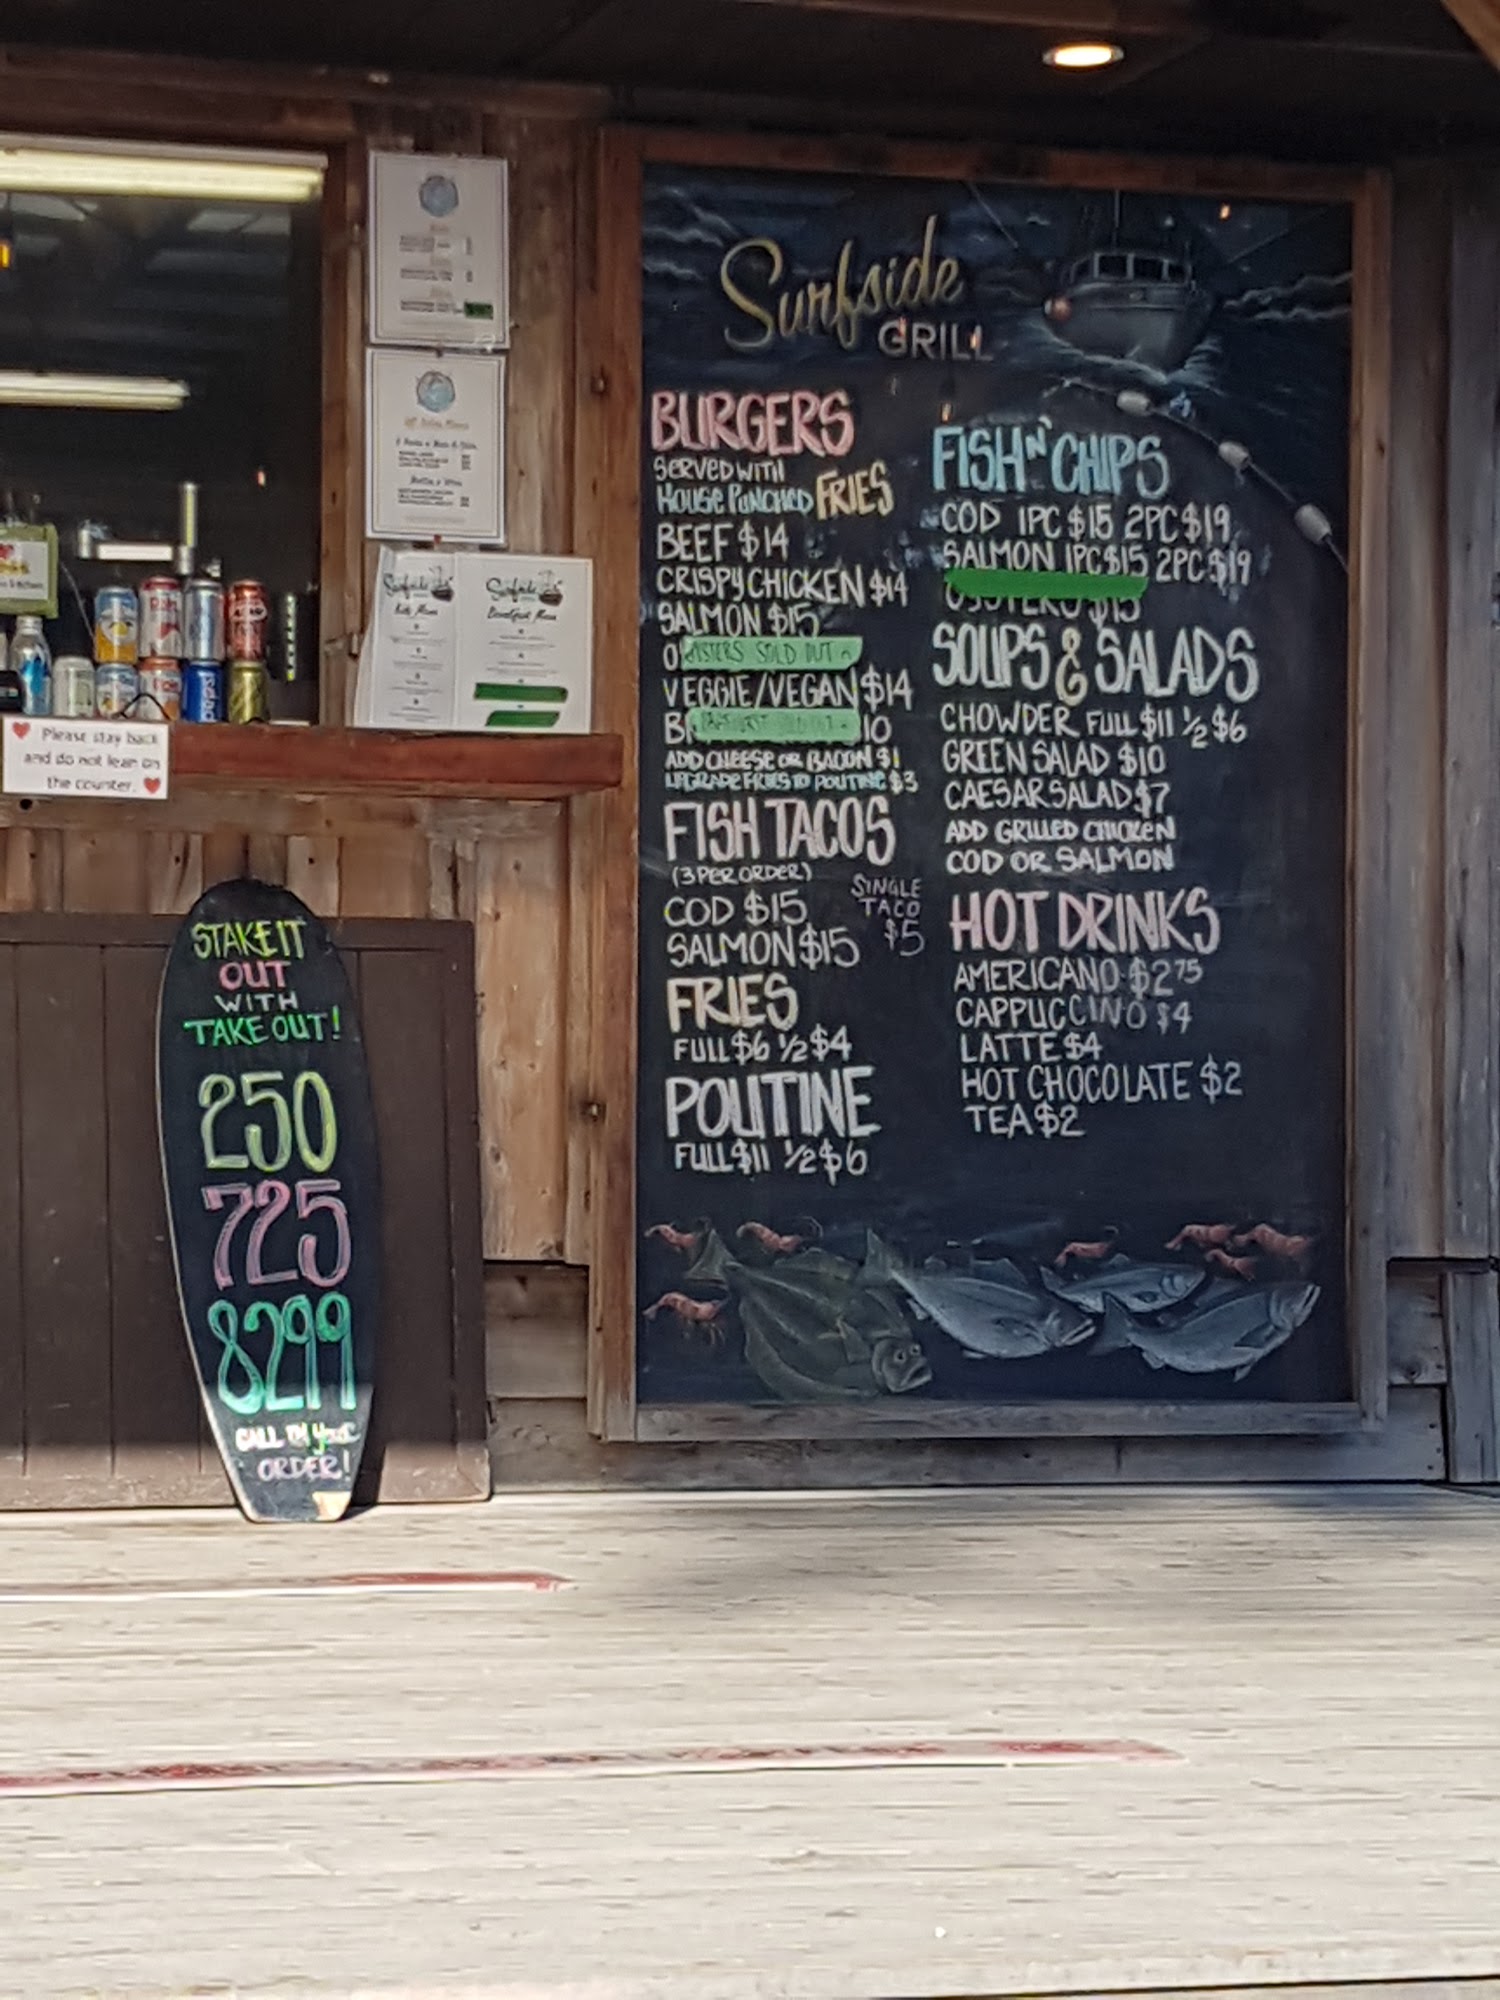 Surfside
GRILL
BURGERS
SERVED WITH
HOUSE PUNCHED FRIES
BEEF $14
CRISPY CHICKEN $14
SALMON $15
OYSTERS SOLD OUT
VEGGIE/VEGAN $14
SOLD OUT 10
ADD CHEESE OR BACON $1
UPGRADE FRIES TO POUTINE $3
FISH TACOS
(3 PER ORDER)
SINGLE
TACO
$5
COD $15
SALMON $15
FRIES
FULL $6 ½ $4
POUTINE
FULL $11 ½ $6
FISH N' CHIPS
COD 1PC $15 2PC $19
SALMON 1PC $15 2PC $19
$15
SOUPS & SALADS
CHOWDER FULL $11 ½ $6
GREEN SALAD $10
CAESAR SALAD $7
ADD GRILLED CHICKEN
COD OR SALMON
HOT DRINKS
AMERICANO $2 75
CAPPUCCINO $4
LATTE $4
HOT CHOCOLATE $2
TEA $2
Surfside
Kids Menu
Surfside
Breakfast Menu
pepsi
Please stay back
and do not lean on
the counter.
STAKE IT
OUT
WITH
TAKE OUT!
250
725
8299
CALL IN your
ORDER!